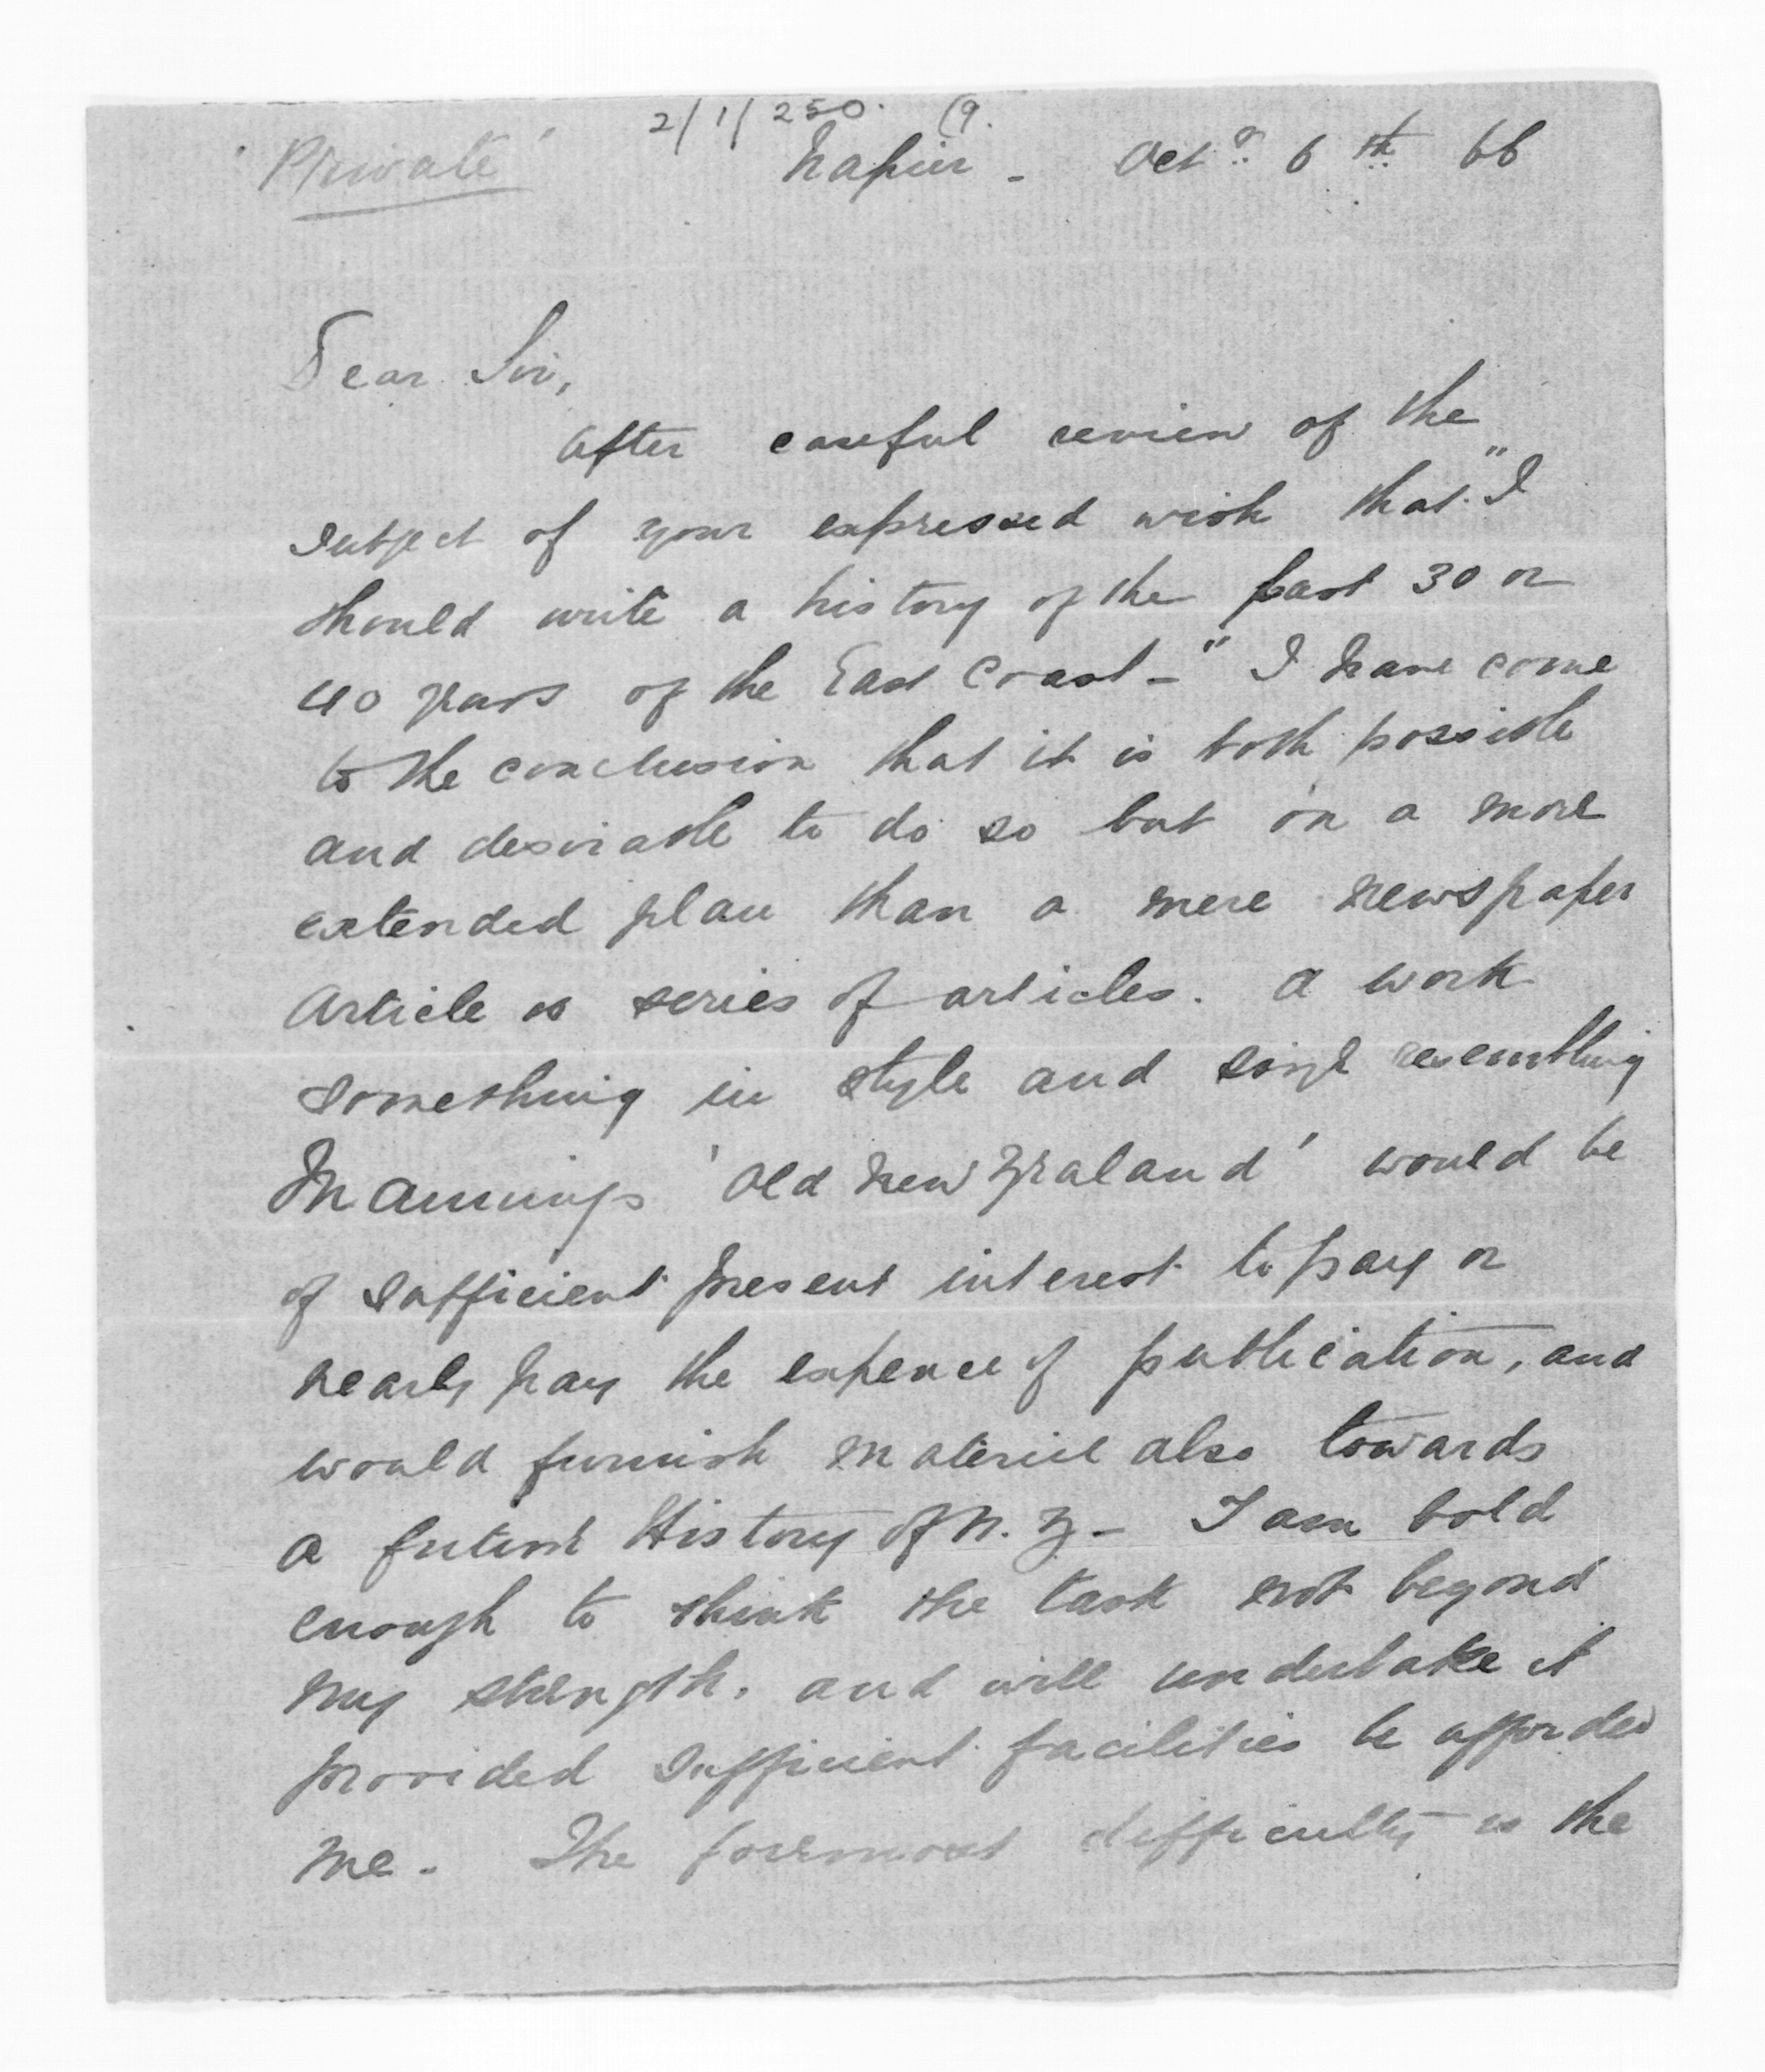 2/1/250. (9.
'Private' Napier - Octr. 6th 66
Dear Sir,
After careful review of the
subject of your expressed wish that "I
should write a history of the past 30 or
40 years of the East Coast -" I have come
to the conclusion that it is both possible
and desirable to do so but on a more
extended plan than a mere newspaper
Article or series of articles. A work
something in style and size resembling
Mannings 'Old New Zealand' would be
of sufficient present interest to pay or
nearly pay the expence of publication, and
would furnish material also towards
a future History of N.Z - I am bold
enough to think the task not beyond
my strength, and will undertake it
provided sufficient facilities be afforded
me - The foremost difficulty is the